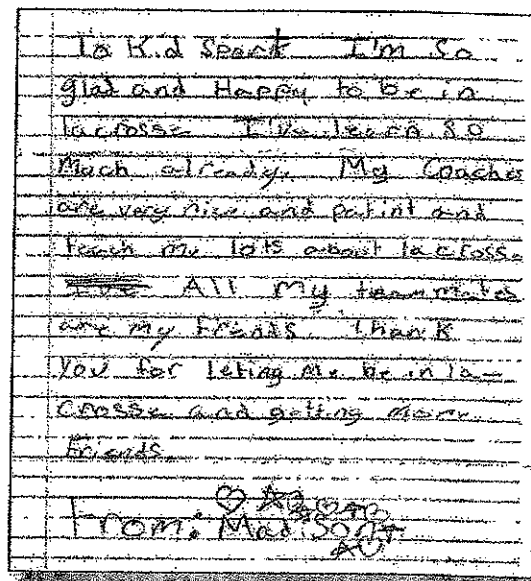 To Kid Spark I'm so
glad and Happy to be in
lacrosse I've learn so
Much already. My Coaches
are very nice and patint and
teach me lots about lacrosse
All My teammates
are my Friends Thank
You for Leting Me be in la-
crosse and getting more
Friends.
From: Madison